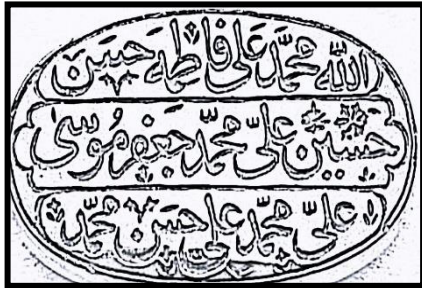 الله محمد علی فاطمة حسن
حسین علیّ محمّد جعفر موسی
علیّ محمّد علی حسن محمّد